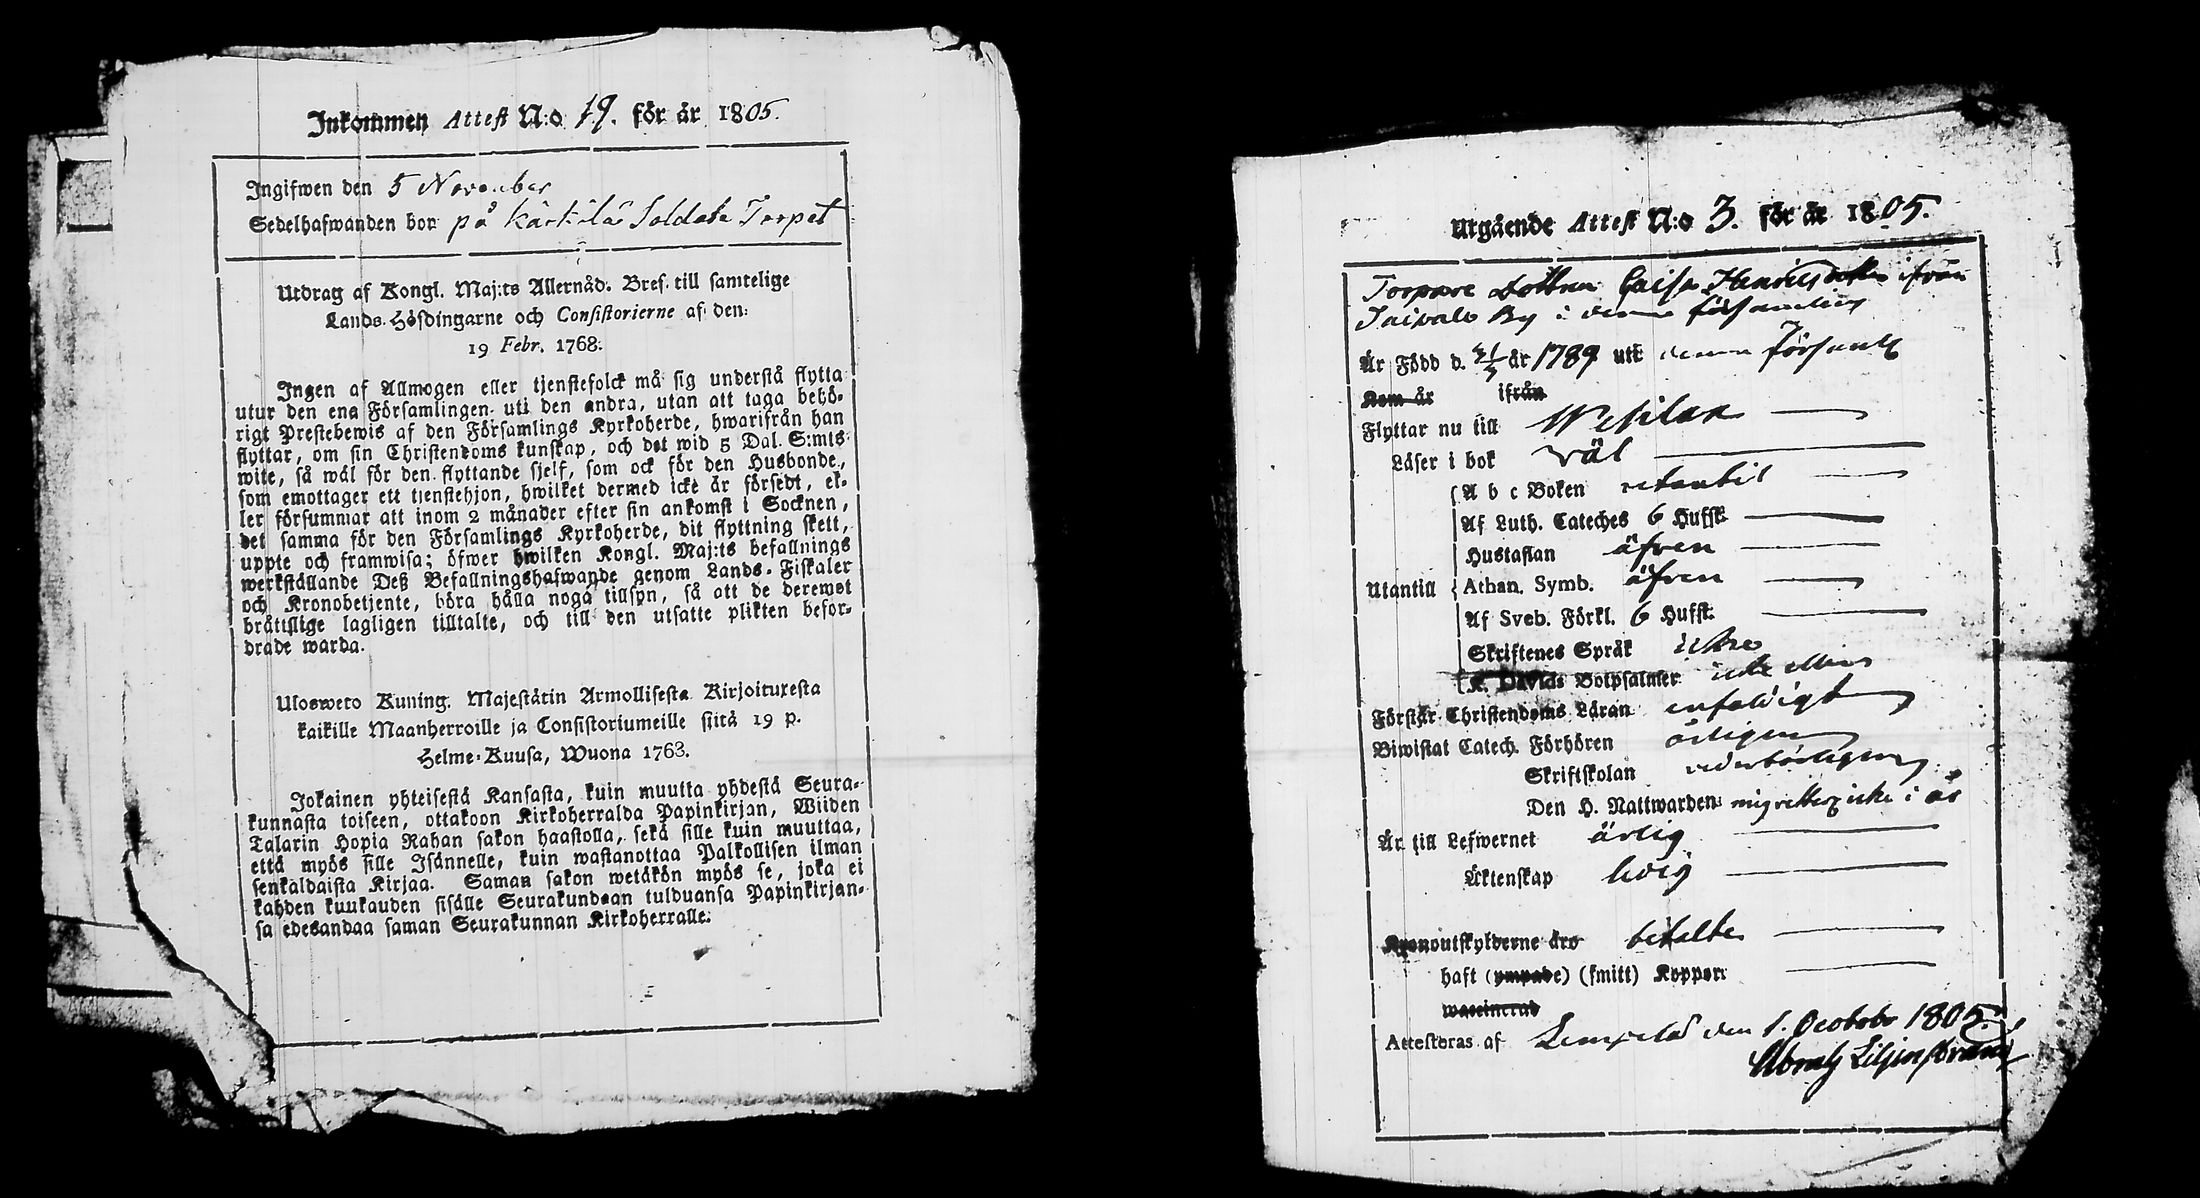 Inkommen Attest N:o 19. för år 1805.
Ingifwen den 5 November
Sedelhafwanden bor på Kärkilä Soldate Torpet
Utdrag af Kongl. Maj:ts Allernåd. Bref. till samtelige
Lands-Höfdingarne och Consistorierne af den:
19 Febr. 1768.
Ingen af Allmogen eller tjenstefolck må sig understå flytta
utur den ena Församlingen uti den andra, utan att taga behö-
rigt Prestebewis af den Församlings Kyrkoherde, hwarifrån han
flyttar, om sin Christendoms kunskap, och det wid 5 Dal. S:mts
wite, så wäl för den flyttande sjelf, som ock för den Husbonde,
som emottager ett tjenstehjon, hwilket dermed icke är försedt, el-
ler försummar att inom 2 månader efter sin ankomst i Socknen,
det samma för den Församlings Kyrkoherde, dit flyttning skett,
uppte och framwisa; öfwer hwilken Kongl. Maj:ts befallnings
werkställande Deß Befallningshafwande genom Lands-Fiskaler
och Kronobetjente, böra hålla noga tillsyn, så att de deremot
bråttslige lagligen tilltalte, och till den utsatte plikten befor-
drade warda.
Ulosweto Kuning. Majestätin Armollisesta Kirjoituxesta
kaikille Maanherroille ja Consistoriumeille siitä 19 p.
Helme-Kuusa, Wuona 1768.
Jokainen yhteisestä Kansasta, kuin muutta yhdestä Seura-
kunnasta toiseen, ottakoon Kirkoherralda Papinkirjan, Wiiden
Talarin Hopia Rahan sakon haastolla, sekä sille kuin muuttaa,
että myös sille Isännelle, kuin wastanottaa Palkollisen ilman
senkaldaista Kirjaa. Saman sakon wetäkön myös se, joka ei
kahden kuukauden sisälle Seurakundaan tulduansa Papinkirjan-
sa edesandaa saman Seurakunnan Kirkoherralle.
Utgående Attest N:o 3. för år 1805.
Torpare dottren Caisa Henricsdotter ifrån
Saivalo By i denna församling
Är Född d. 31/7 år 1789 uti denna Församl
Kom år ifrån
Flyttar nu till Wesilax
Läser i bok wäl
A b c Boken utantil
Af Luth. Cateches 6 Hufst.
Hustaflan äfven
Utantill Athan. Symb. äfven
Af Sveb. Förkl. 6 Hufst.
Skriftenes Språk icke
K. Davids Botpsalmer icke eller
Förstår Christendoms Läran enfaldigt
Biwistat Catech. Förhören årligen
Skriftskolan vederbörligen
Den H. Nattwarden icke i år
Är till Lefwernet ärlig
Äktenskap ledig
Kronoutskylderne äro betalte
haft (ympade) (smitt) Koppor
Attesteras af Lempelä den 1. October 1805.
Abrah Liljenstrand